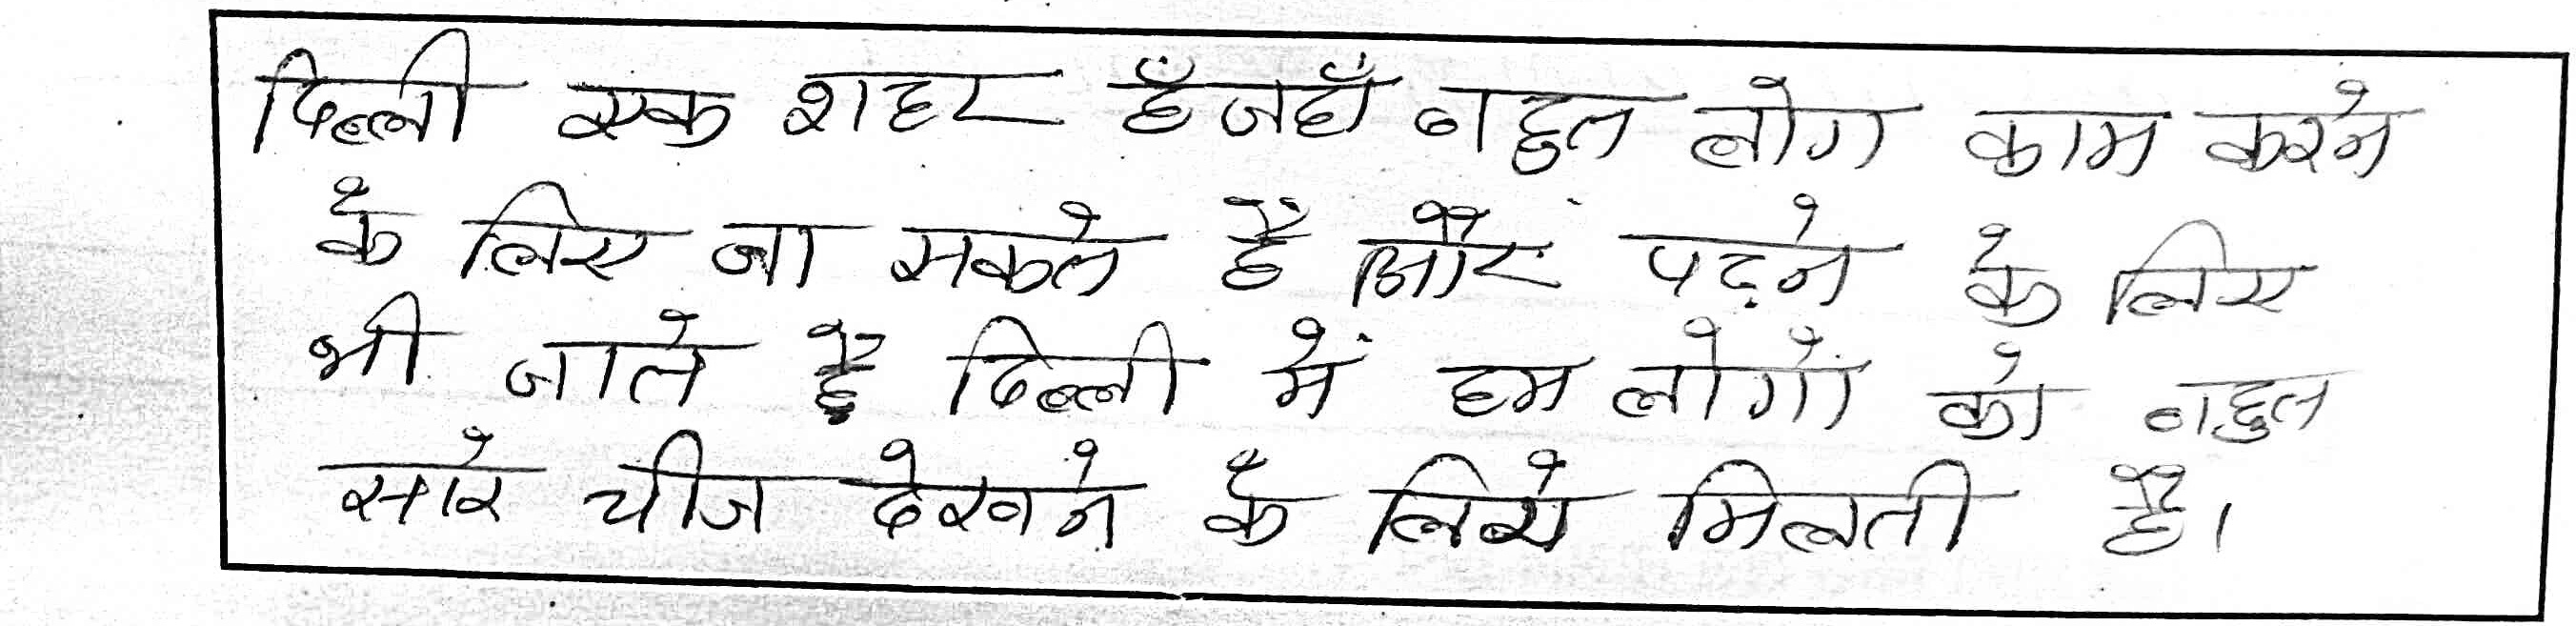 दिल्ली एक शहर हैँ जहाँ बहुत लोग काम करने
के लिए जा सकते हैं और पढ़ने के लिए
भी जाते है दिल्ली में हम लोगों को बहुत
सारे चीज देखने के लिये मिलती है।